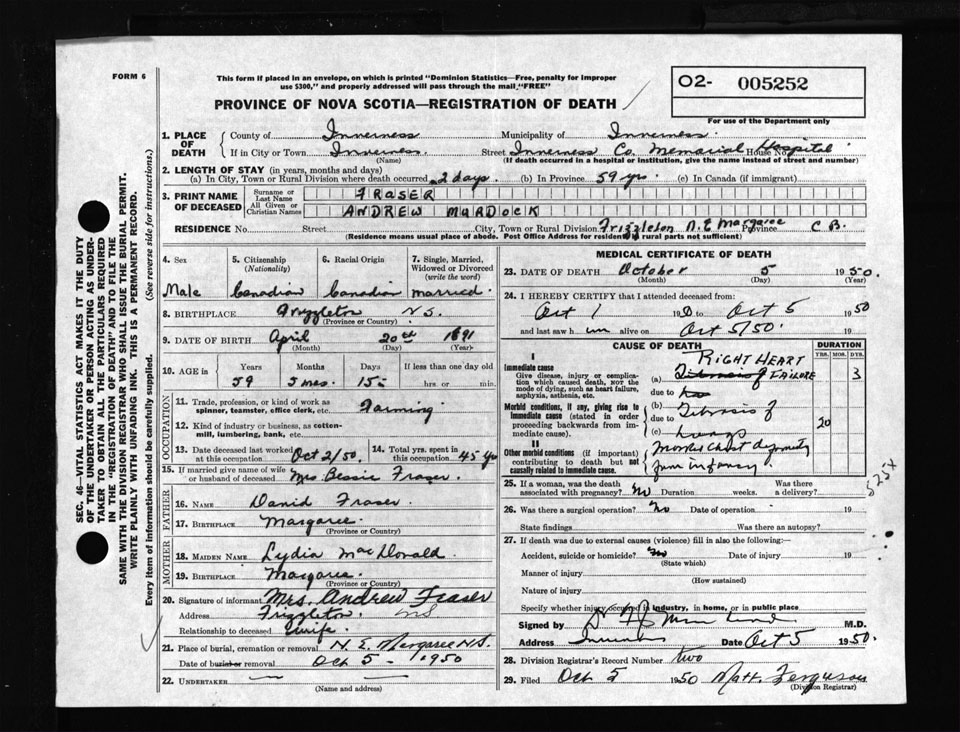 FORM 6
This form if placed in an envelope, on which is printed "Dominion Statistics—Free, penalty for improper
use $300," and properly addressed will pass through the mail "FREE"
O2- 005252
For use of the Department only
PROVINCE OF NOVA SCOTIA—REGISTRATION OF DEATH
SEC. 46—VITAL STATISTICS ACT MAKES IT THE DUTY
OF THE UNDERTAKER OR PERSON ACTING AS UNDER-
TAKER TO OBTAIN ALL THE PARTICULARS REQUIRED
IN THE "REGISTRATION OF DEATH" AND TO FILE THE
SAME WITH THE DIVISION REGISTRAR WHO SHALL ISSUE THE BURIAL PERMIT.
WRITE PLAINLY WITH UNFADING INK. THIS IS A PERMANENT RECORD.
Every item of information should be carefully supplied. (See reverse side for instructions.)
1. PLACE OF DEATH
County of Inverness Municipality of Inverness
If in City or Town Inverness Street Inverness Co. Memorial Hospital House No.
(Name) (If death occurred in a hospital or institution, give the name instead of street and number)
2. LENGTH OF STAY (in years, months and days)
(a) In City, Town or Rural Division where death occurred 2 days. (b) In Province 59 yrs (c) In Canada (if immigrant)
3. PRINT NAME OF DECEASED
Surname or Last Name FRASER
All Given or Christian Names ANDREW MURDOCK
RESIDENCE No. Street City, Town or Rural Division Frizzleton N.E Margaree Province C.B.
(Residence means usual place of abode. Post Office Address for residents in rural parts not sufficient)
4. Sex Male
5. Citizenship (Nationality) Canadian
6. Racial Origin Canadian
7. Single, Married, Widowed or Divorced (write the word) married.
8. BIRTHPLACE Frizzleton N.S.
(Province or Country)
9. DATE OF BIRTH April 20 1891
(Month) (Day) (Year)
10. AGE in Years Months Days If less than one day old
59 5 mos. 15 hrs. or min.
OCCUPATION
11. Trade, profession, or kind of work as
spinner, teamster, office clerk, etc. Farming
12. Kind of industry or business, as cotton-
mill, lumbering, bank, etc.
13. Date deceased last worked at this occupation Oct 2/50
14. Total yrs. spent in this occupation 45 yrs
15. If married give name of wife
or husband of deceased Mrs Bessie Fraser.
FATHER
16. NAME David Fraser
17. BIRTHPLACE Margaree
(Province or Country)
MOTHER
18. MAIDEN NAME Lydia MacDonald
19. BIRTHPLACE Margaree
(Province or Country)
20. Signature of informant Mrs. Andrew Fraser
Address Frizzleton NS
Relationship to deceased wife.
21. Place of burial, cremation or removal N. E. Margaree N.S.
Date of burial or removal Oct 5 - 1950
22. UNDERTAKER
(Name and address)
MEDICAL CERTIFICATE OF DEATH
23. DATE OF DEATH October 5 1950.
(Month) (Day) (Year)
24. I HEREBY CERTIFY that I attended deceased from:
Oct 1 to Oct 5 1950
and last saw him alive on Oct 5/50 19
CAUSE OF DEATH DURATION
YRS. MOS. DYS.
I
Immediate cause
Give disease, injury or complica-
tion which caused death, NOT the
mode of dying, such as heart failure,
asphyxia, asthenia, etc.
(a) RIGHT HEART
FAILURE 3
due to
Morbid conditions, if any, giving rise to
immediate cause (stated in order
proceeding backwards from im-
mediate cause).
(b) Fibrosis of
due to
(c) Lungs 20
II
Other morbid conditions (if important)
contributing to death but not
causally related to immediate cause.
chest deformity
from infancy.
525x
25. If a woman, was the death
associated with pregnancy? No Duration weeks. Was there
a delivery?
26. Was there a surgical operation? No Date of operation 19
State findings Was there an autopsy?
27. If death was due to external causes (violence) fill in also the following:—
Accident, suicide or homicide? No Date of injury 19
(State which)
Manner of injury
(How sustained)
Nature of injury
Specify whether injury occurred in industry, in home, or in public place
Signed by Dr M.D.
Address Inverness Date Oct 5 1950.
28. Division Registrar's Record Number two
29. Filed Oct 5 1950 Matt. Ferguson
(Division Registrar)